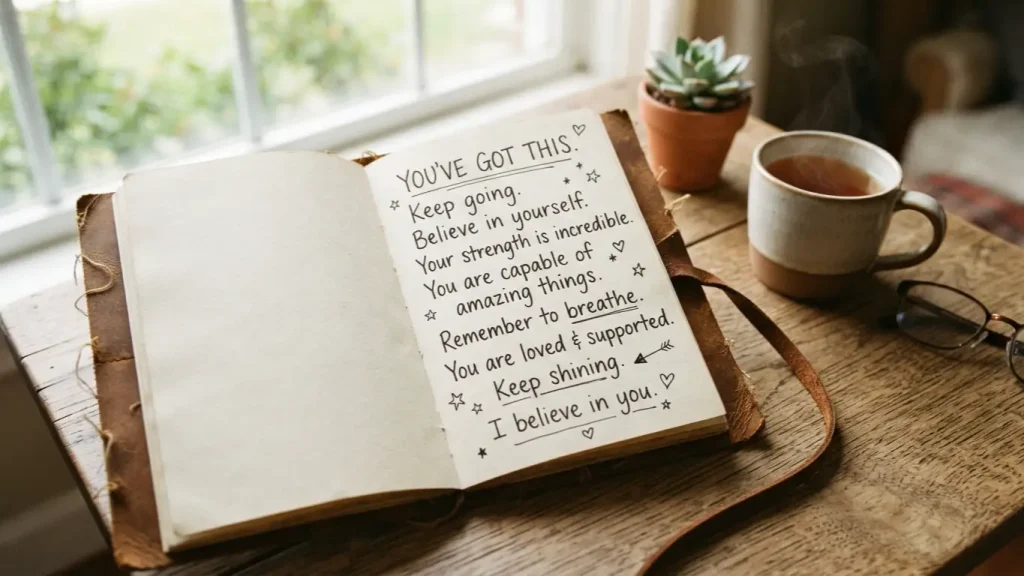 YOU'VE GOT THIS.
Keep going.
Believe in yourself.
Your strength is incredible.
You are capable of
amazing things.
Remember to breathe.
You are loved & supported.
Keep shining.
I believe in you.